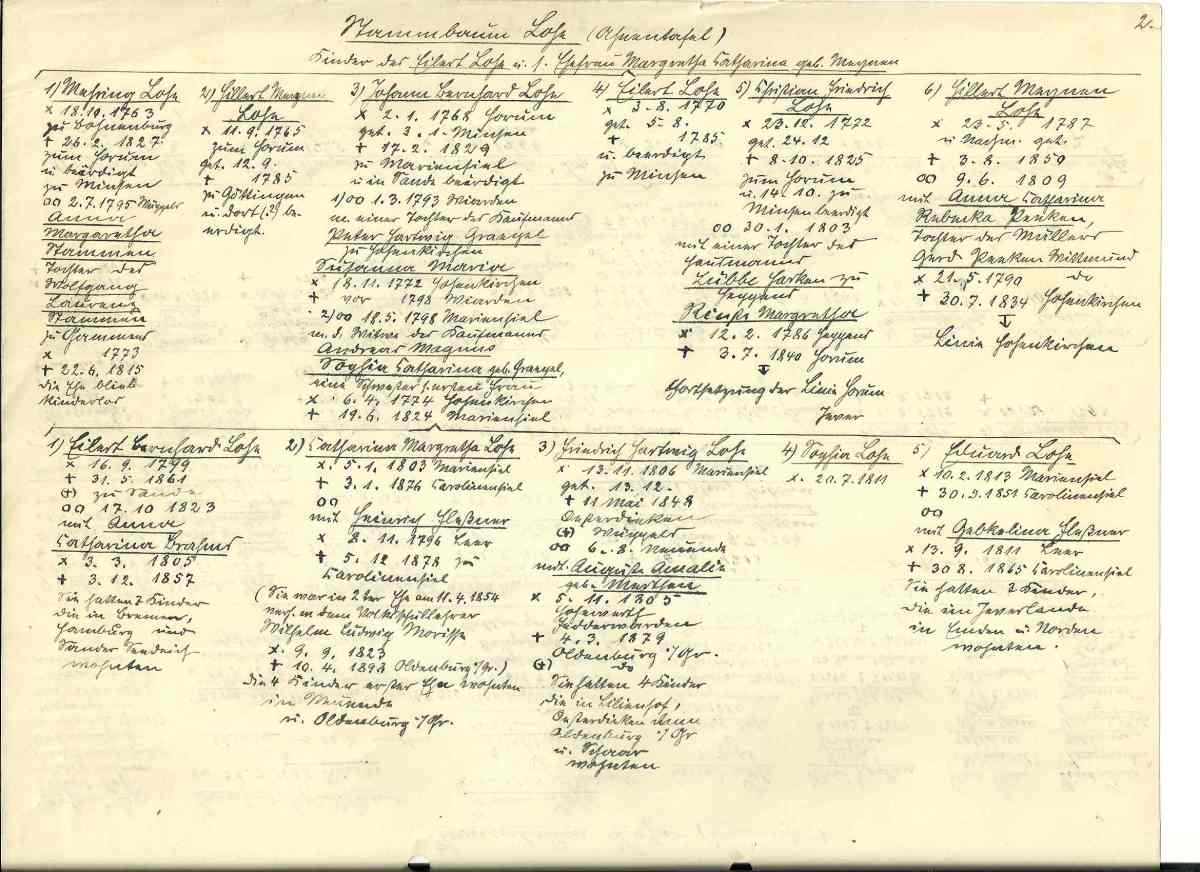 2.
Stammbaum Lohse (Ahnentafel)
Kinder des Eilert Lohse u. s. Ehefrau Margretha Catharina geb. Meynen
1) Mehring Lohse
x 18.10.1763
zu Bohnenburg
+ 26.2. 1827.
zum Horum
u beerdigt
zu Minsen
oo 2.7.1795 Wüppels
Anna
Margaretha
Stammen
Tochter des
Wolfgang
Laurenz
Stammen
zu Gammens
x 1773
+ 22.6. 1815
Die Ehe blieb
kinderlos
2) Hillert Meynen
Lohse
x 11.9. 1765
zum Horum
get. 12.9.
+ 1785
zu Göttingen
u. dort (?) be-
erdigt.
3) Johann Bernhard Lohse
x 2.1. 1768 Horum
get. 3.1. Minsen
+ 17.2. 1829
zu Mariensiel
u in Sande beerdigt
1) oo 1.3.1793 Wiarden
m. einer Tochter des Kaufmanns
Peter Hartwig Graepel
zu Hohenkirchen
Susanna Maria
x 18.11.1772 Hohenkirchen
+ vor 1798 Wiarden
2) oo 18.5.1798 Mariensiel
m. d. Witwe des Kaufmanns
Andreas Magnus
Sophia Catharina geb. Graepel,
eine Schwester s. ersten Frau
x 6.4. 1774 Hohenkirchen
+ 19.6. 1824 Mariensiel
4) Eilert Lohse
x 3.8. 1770
get. 5.8.
+ 1785
u. beerdigt
zu Minsen
5) Christian Friedrich
Lohse
x 23.12. 1772
get. 24.12
+ 8.10. 1825
zum Horum
u. 14.10. zu
Minsen beerdigt
oo 30.1. 1803
mit einer Tochter des
Hausmanns
Lübbe Harken zu
Heppens
Rinki Margretha
x 12.2. 1786 Heppens
+ 3.7. 1840 Horum
↓
Fortsetzung der Linie Horum
Jever
6) Hillert Meynen
Lohse
x 23.5. 1787
u Nachm. get.
+ 3.8. 1859
oo 9.6. 1809
mit Anna Catharina
Rebecka Peeken,
Tochter des Müllers
Gerd Peeken Wittmund
x 21.5.1790 do
+ 30.7. 1834 Hohenkirchen
↓
Linie Hohenkirchen
1) Eilert Bernhard Lohse
x 16.9. 1799
+ 31.5. 1861
(+) zu Sande
oo 17.10 1823
mit Anna
Catharina Brahms
x 3.3. 1805
+ 3.12. 1857
Sie hatten 7 Kinder
die in Bremen,
Hamburg und
Sander Seedeich
wohnten
2) Catharina Margretha Lohse
x. 5.1. 1803 Mariensiel
+ 3.1. 1876 Carolinensiel
oo
mit Heinrich Fleßner
x 8.11. 1796 Leer
+ 5.12 1878 zu
Carolinensiel
(Sie war in 2ter Ehe am 11.4.1854
verh. m dem Volksschullehrer
Wilhelm Ludwig Morisse
x. 9.9. 1823
+ 10.4. 1898 Oldenburg i/Gr.)
die 4 Kinder erster Ehe wohnten
in Neuende
u. Oldenburg i/Gr.
3) Friedrich Hartwig Lohse
x. 13.11. 1806 Mariensiel
get. 13.12.
+ 11 Mai 1848
Oesterdieken
(+) Wüppels
oo 6.8. Neuende
mit Auguste Amalie
geb. Merthen
x 5.11. 1805
Hohewerth
Fedderwarden
+ 4.3. 1879
Oldenburg i/Gr.
(+) do
Sie hatten 4 Kinder
die in Lilienhof,
Oesterdieken
Oldenburg i/Gr
u. Schaar
wohnten
4) Sophia Lohse
x. 20.7.1811
5) Eduard Lohse
x 10.2. 1813 Mariensiel
+ 30.9.1851 Carolinensiel
oo
mit Gebkelina Fleßner
x 13.9. 1811 Leer
+ 30 8. 1865 Carolinensiel
Sie hatten 3 Kinder,
die im Jeverlande
in Emden u. Norden
wohnten.